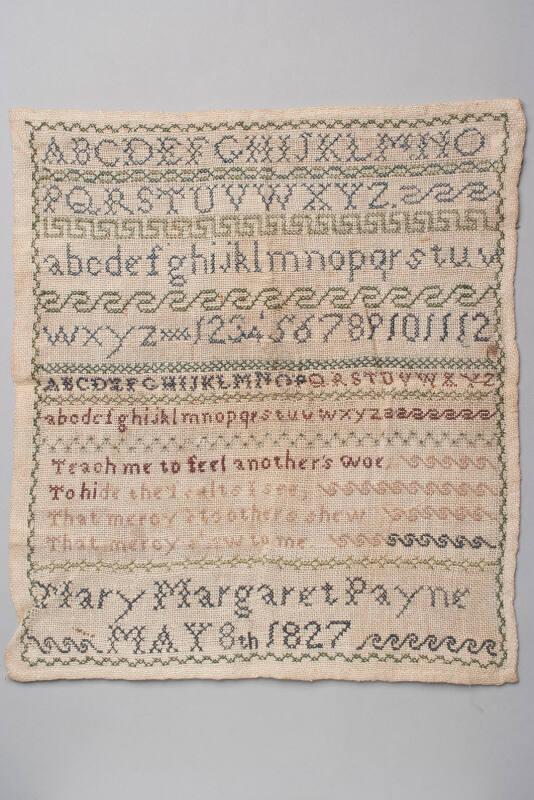 ABCDEFGHIJKLMNO
PQRSTUVWXYZ.
abcdefghijklmnopqrstuv
wxyz 123456789101112
ABCDEFGHIJKLMNOPQRSTUVWXYZ
abcdefghijklmnopqrstuvwxyz
Teach me to feel another's woe
To hide the I see,
That mercy I to others shew
That mercy to me
Mary Margaret Payne
MAY 8th 1827